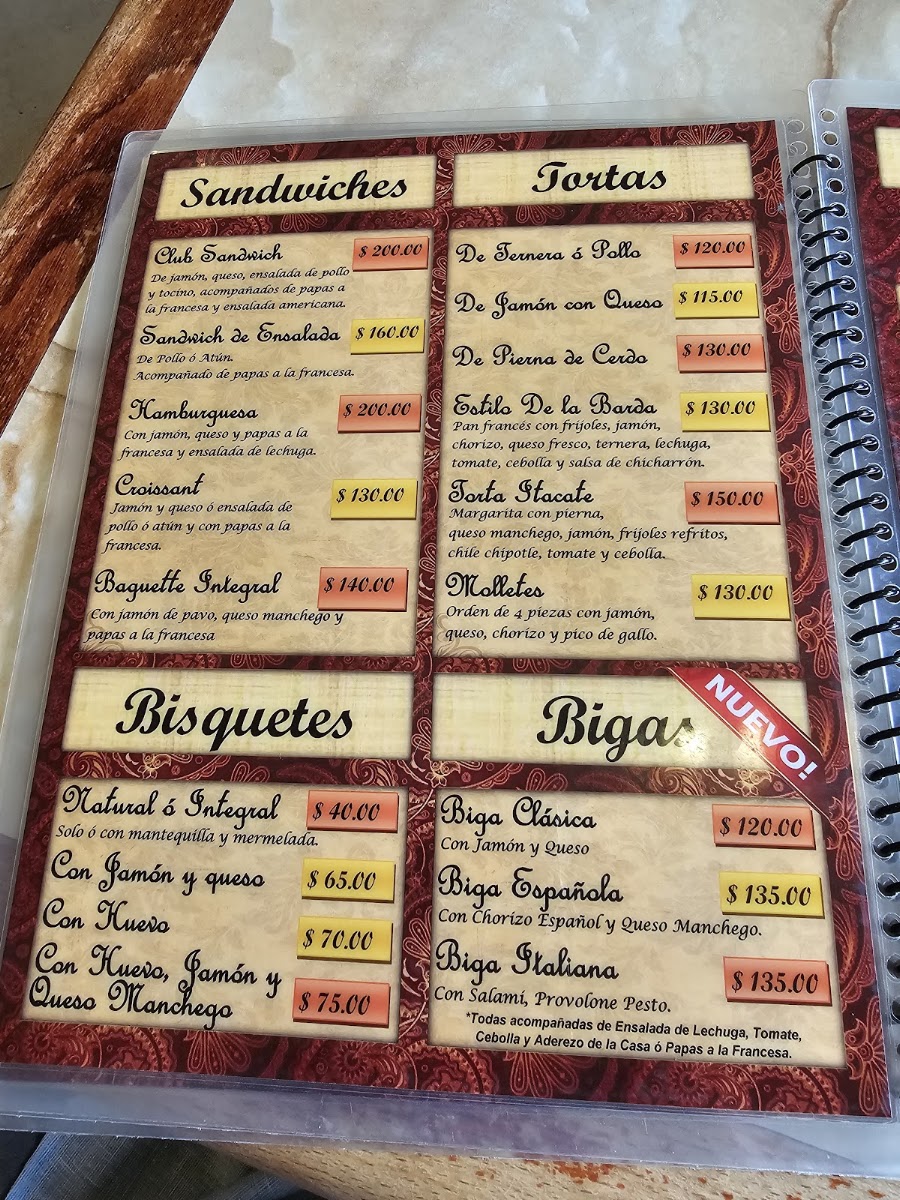 Sandwiches
Club Sandwich $ 200.00
De jamón, queso, ensalada de pollo
y tocino, acompañados de papas a
la francesa y ensalada americana.
Sandwich de Ensalada $ 160.00
De Pollo ó Atún.
Acompañado de papas a la francesa.
Hamburguesa $ 200.00
Con jamón, queso y papas a la
francesa y ensalada de lechuga.
Croissant $ 130.00
Jamón y queso ó ensalada de
pollo ó atún y con papas a la
francesa.
Baguette Integral $ 140.00
Con jamón de pavo, queso manchego y
papas a la francesa
Tortas
De Ternera ó Pollo $ 120.00
De Jamón con Queso $ 115.00
De Pierna de Cerdo $ 130.00
Estilo De la Barda $ 130.00
Pan francés con frijoles, jamón,
chorizo, queso fresco, ternera, lechuga,
tomate, cebolla y salsa de chicharrón.
Torta Itacate $ 150.00
Margarita con pierna,
queso manchego, jamón, frijoles refritos,
chile chipotle, tomate y cebolla.
Molletes $ 130.00
Orden de 4 piezas con jamón,
queso, chorizo y pico de gallo.
Bisquetes
Natural ó Integral $ 40.00
Solo ó con mantequilla y mermelada.
Con Jamón y queso $ 65.00
Con Huevo $ 70.00
Con Huevo, Jamón y
Queso Manchego $ 75.00
Bigas
NUEVO!
Biga Clásica $ 120.00
Con Jamón y Queso
Biga Española $ 135.00
Con Chorizo Español y Queso Manchego.
Biga Italiana $ 135.00
Con Salami, Provolone Pesto.
*Todas acompañadas de Ensalada de Lechuga, Tomate,
Cebolla y Aderezo de la Casa ó Papas a la Francesa.